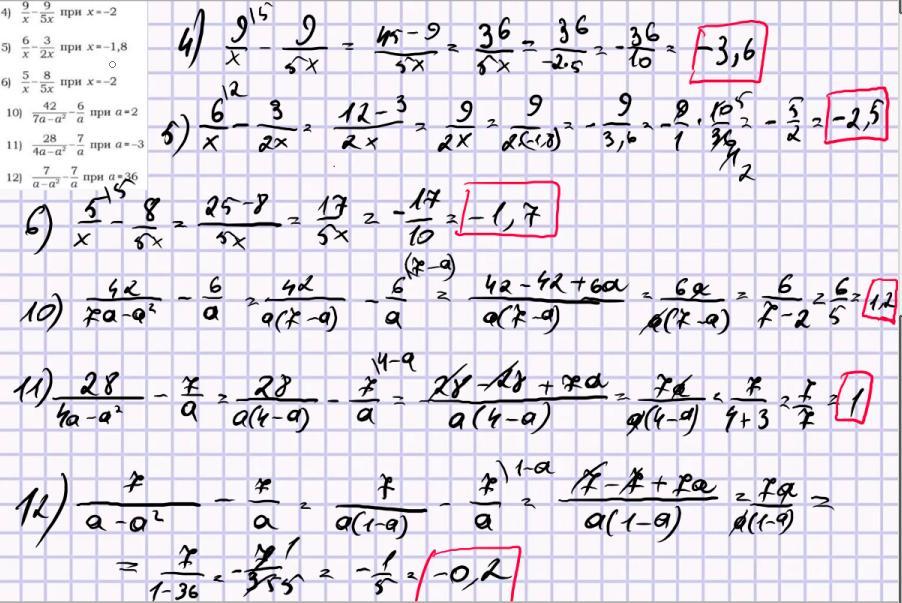 4) 9/x - 9/5x при x = -2
5) 6/x - 3/2x при x = -1,8
6) 5/x - 8/5x при x = -2
10) 42/(7a-a²) - 6/a при a = 2
11) 28/(4a-a²) - 7/a при a = -3
12) 7/(a-a²) - 7/a при a = 36
4) 9\5/x - 9/5x = (45-9)/5x = 36/5x = 36/-2·5 = -36/10 = -3,6
5) 6\2/x - 3/2x = (12-3)/2x = 9/2x = 9/2(-1,8) = -9/3,6 = -9/1 · 10 5/36 4 2 = -5/2 = -2,5
6) 5\5/x - 8/5x = (25-8)/5x = 17/5x = -17/10 = -1,7
10) 42/(7a-a²) - 6/a = 42/a(7-a) - 6(7-a)/a = (42-42+6a)/a(7-a) = 6a/a(7-a) = 6/(7-2) = 6/5 = 1,2
11) 28/(4a-a²) - 7/a = 28/a(4-a) - 7\4-a/a = (28-28+7a)/a(4-a) = 7a/a(4-a) = 7/(4+3) = 7/7 = 1
12) 7/(a-a²) - 7/a = 7/a(1-a) - 7\1-a/a = (7-7+7a)/a(1-a) = 7a/a(1-a) =
= 7/(1-36) = -7 1/35 5 = -1/5 = -0,2